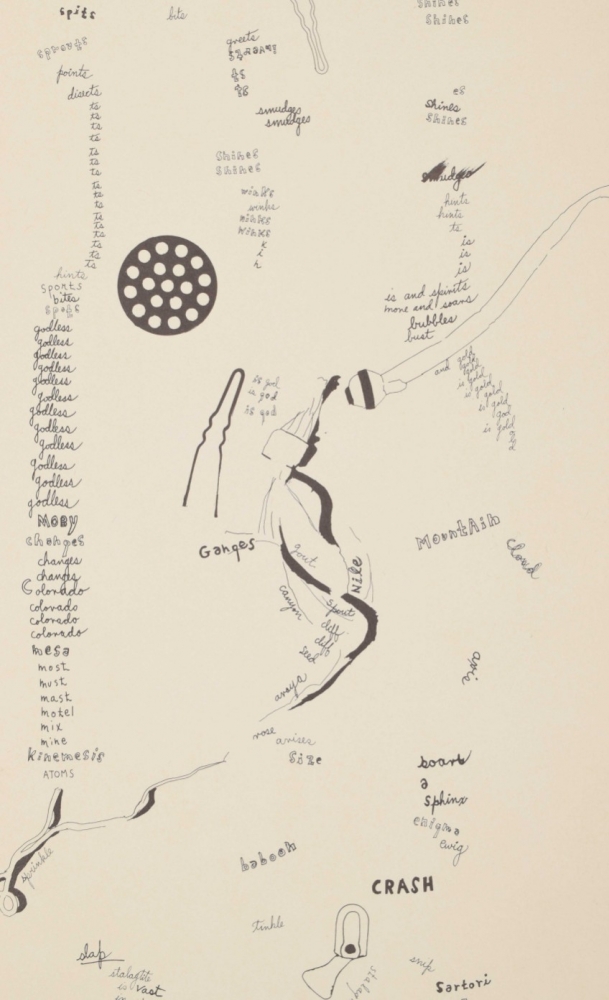 spits
bits
shines
spreads
greets
points
directs
ts
ts
ts
ts
ts
ts
ts
ts
ts
ts
ts
ts
ts
ts
smudges
smudges
es
shines
shines
shines
shines
winks
winks
winks
winks
k
i
k
smudges
hints
hints
ts
is
is
is
is and spirits
more and soars
bubbles
bust
and gold
gold
gold
is gold
is gold
is gold
god
is gold
hints
sports
bites
spots
godless
godless
godless
godless
godless
godless
godless
godless
godless
godless
godless
godless
godless
is god
is god
is god
MOBY
changes
changes
changes
Colorado
colorado
colorado
colorado
mesa
most
must
mast
motel
mix
mine
kinemesis
ATOMS
Ganges
gout
Nile
canyon
spout
diff
diff
seed
araya
rose
arises
size
Mountain
Cloud
avis
board
a
sphinx
enigma
ewig
sprinkle
baboon
CRASH
tinkle
slap
stalagtite
is vast
snip
Sartori